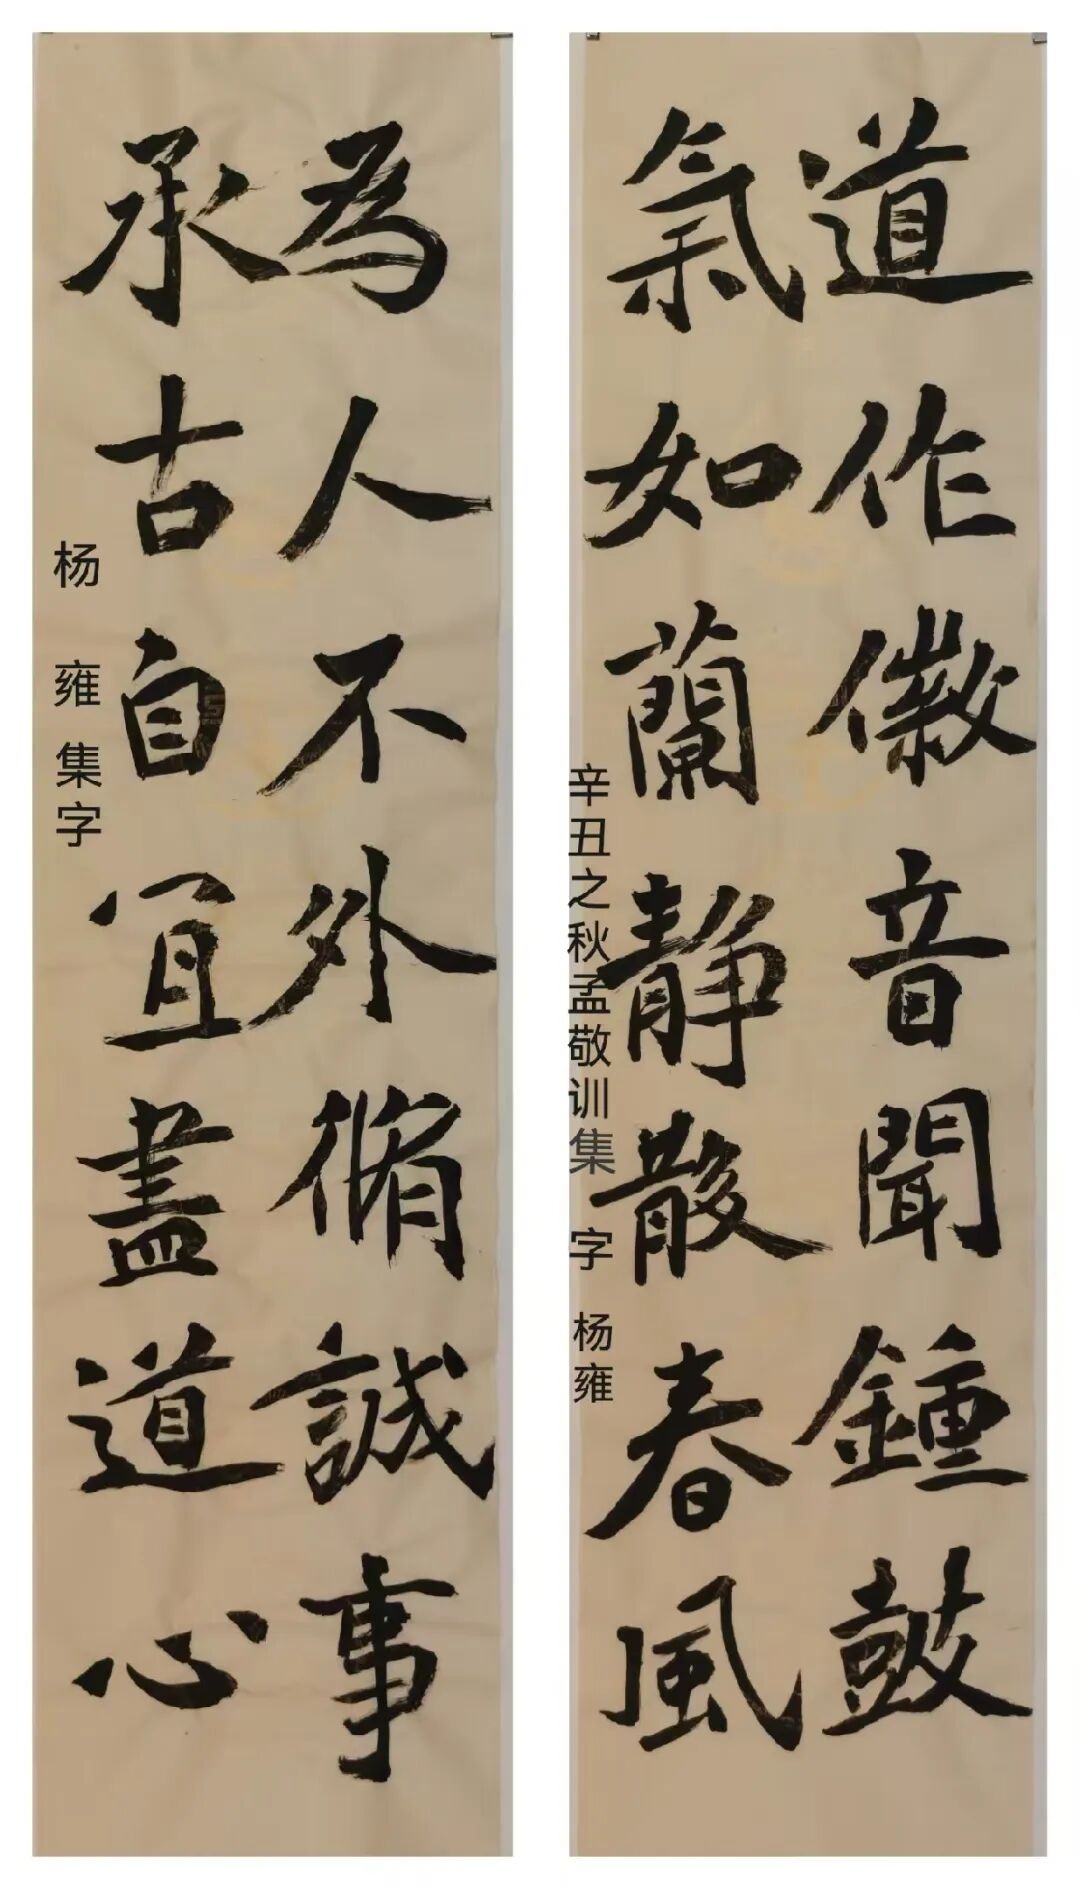 道作徽音聞鍾鼓
氣如蘭靜散春風
辛丑之秋孟敬训集字 杨雍
為人不外脩誠事
承古自宜盡道心
杨雍集字